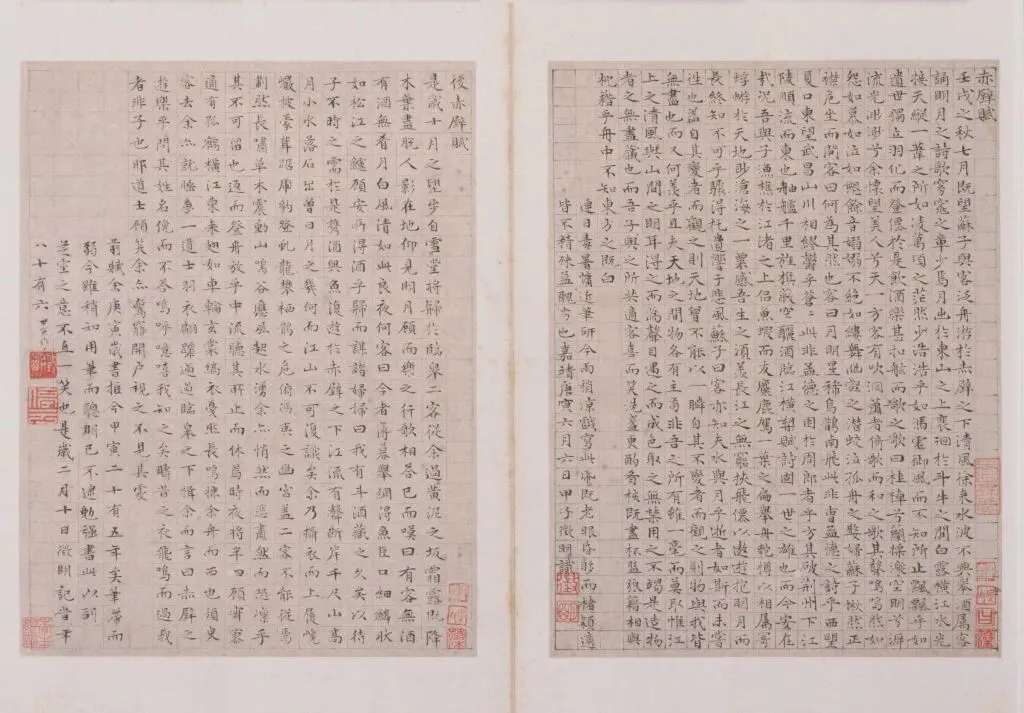 赤壁賦
壬戌之秋七月既望蘇子與客泛舟游於赤壁之下清風徐来水波不興舉酒属客
誦明月之詩歌窈窕之章少焉月出於東山之上裵洄於斗牛之間白露橫江水光
接天縱一葦之所如凌萬頃之茫然少浩浩乎如馮虛御風而不知所止飄飄乎如
遺世獨立羽化而登僊於是飲酒樂甚扣舷而歌之歌曰桂棹兮蘭槳擊空明兮泝
流光渺渺兮余懷望美人兮天一方客有吹洞簫者倚歌而和之歌其聲嗚嗚然如
怨如慕如泣如愬餘音嫋嫋不絕如縷舞幽壑之潛蛟泣孤舟之嫠婦蘇子愀然正
襟危坐而問客曰何為其然也客曰月明星稀烏鵲南飛此非曹孟德之詩乎西望
夏口東望武昌山川相繆鬱乎蒼蒼此非孟德之困于周郎者乎方其破荆州下江
陵順流而東也舳艫千里旌旗蔽空釃酒臨江橫槊賦詩固一世之雄也而今安在
哉況吾與子漁樵於江渚之上侶魚蝦而友麋鹿駕一葉之扁舟匏樽以相屬寄
蜉蝣於天地眇滄海之一粟感吾生之須臾羨長江之無窮挾飛僊以遨遊抱明月而
長終知不可乎驟得托遺響于悲風蘇子曰客亦知夫水與月乎逝者如斯而未嘗
往也蓋自其變者而觀之則天地曾不能以一瞬自其不變者而觀之則物與我皆
無盡也而又何羨乎且夫天地之間物各有主苟非吾之所有雖一毫而莫取惟江
上之清風與山間之明耳得之而為聲目遇之而成色取之無禁用之不竭是造物
者之無盡藏也而吾子與之所共適客喜而笑洗盞更酌肴核既盡杯盤狼藉相與
枕藉乎舟中不知東方之既白
連日毒暑慵近筆研今雨稍涼戲寫此紙既老眼昏眵而楮穎適
皆不精殊益醜劣也嘉靖庚寅六月六日甲子徵明識
後赤壁賦
是歲十月之望步自雪堂將歸於臨皋二客從余過黃泥之坂霜露既降
木葉盡脫人影在地仰見明月顧而樂之行歌相答已而嘆曰有客無酒
有酒無肴月白風清如此良夜何客曰今者薄暮舉網得魚巨口細鱗狀
如松江之鱸顧安所得酒乎歸而謀諸婦婦曰我有斗酒藏之久矣以待
子不時之需於是攜酒與魚復遊於赤壁之下江流有聲断岸千尺山高
月小水落石出曾日月之幾何而江山不可復識矣余乃攝衣而上履巉
巖披蒙茸踞虎豹登虬龍攀栖鶻之危俯馮夷之幽宮盖二客不能從焉
劃然長嘯草木震動山鳴谷應風起水湧余亦悄然而悲肅然而恐凜乎
其不可留也返而登舟放乎中流聽其所止而休焉時夜將半四顧寂寥
適有孤鶴横江東来翅如車輪玄裳縞衣戛然長鳴掠余舟而西也須臾
客去余亦就睡夢一道士羽衣翩躚過臨皋之下揖余而言曰赤壁之
遊樂乎問其姓名俛而不荅嗚呼噫嘻我知之矣疇昔之夜飛鳴而過我
者非子也耶道士顧笑余亦驚寤開戶視之不見其處
前賦余庚寅歲書拒今甲寅二十有五年矣筆滯而
弱今雖稍知用筆而聰明已不逮勉强書此以副
芝室之意不直一笑也是歲二月十日徵明記時年
八十有六